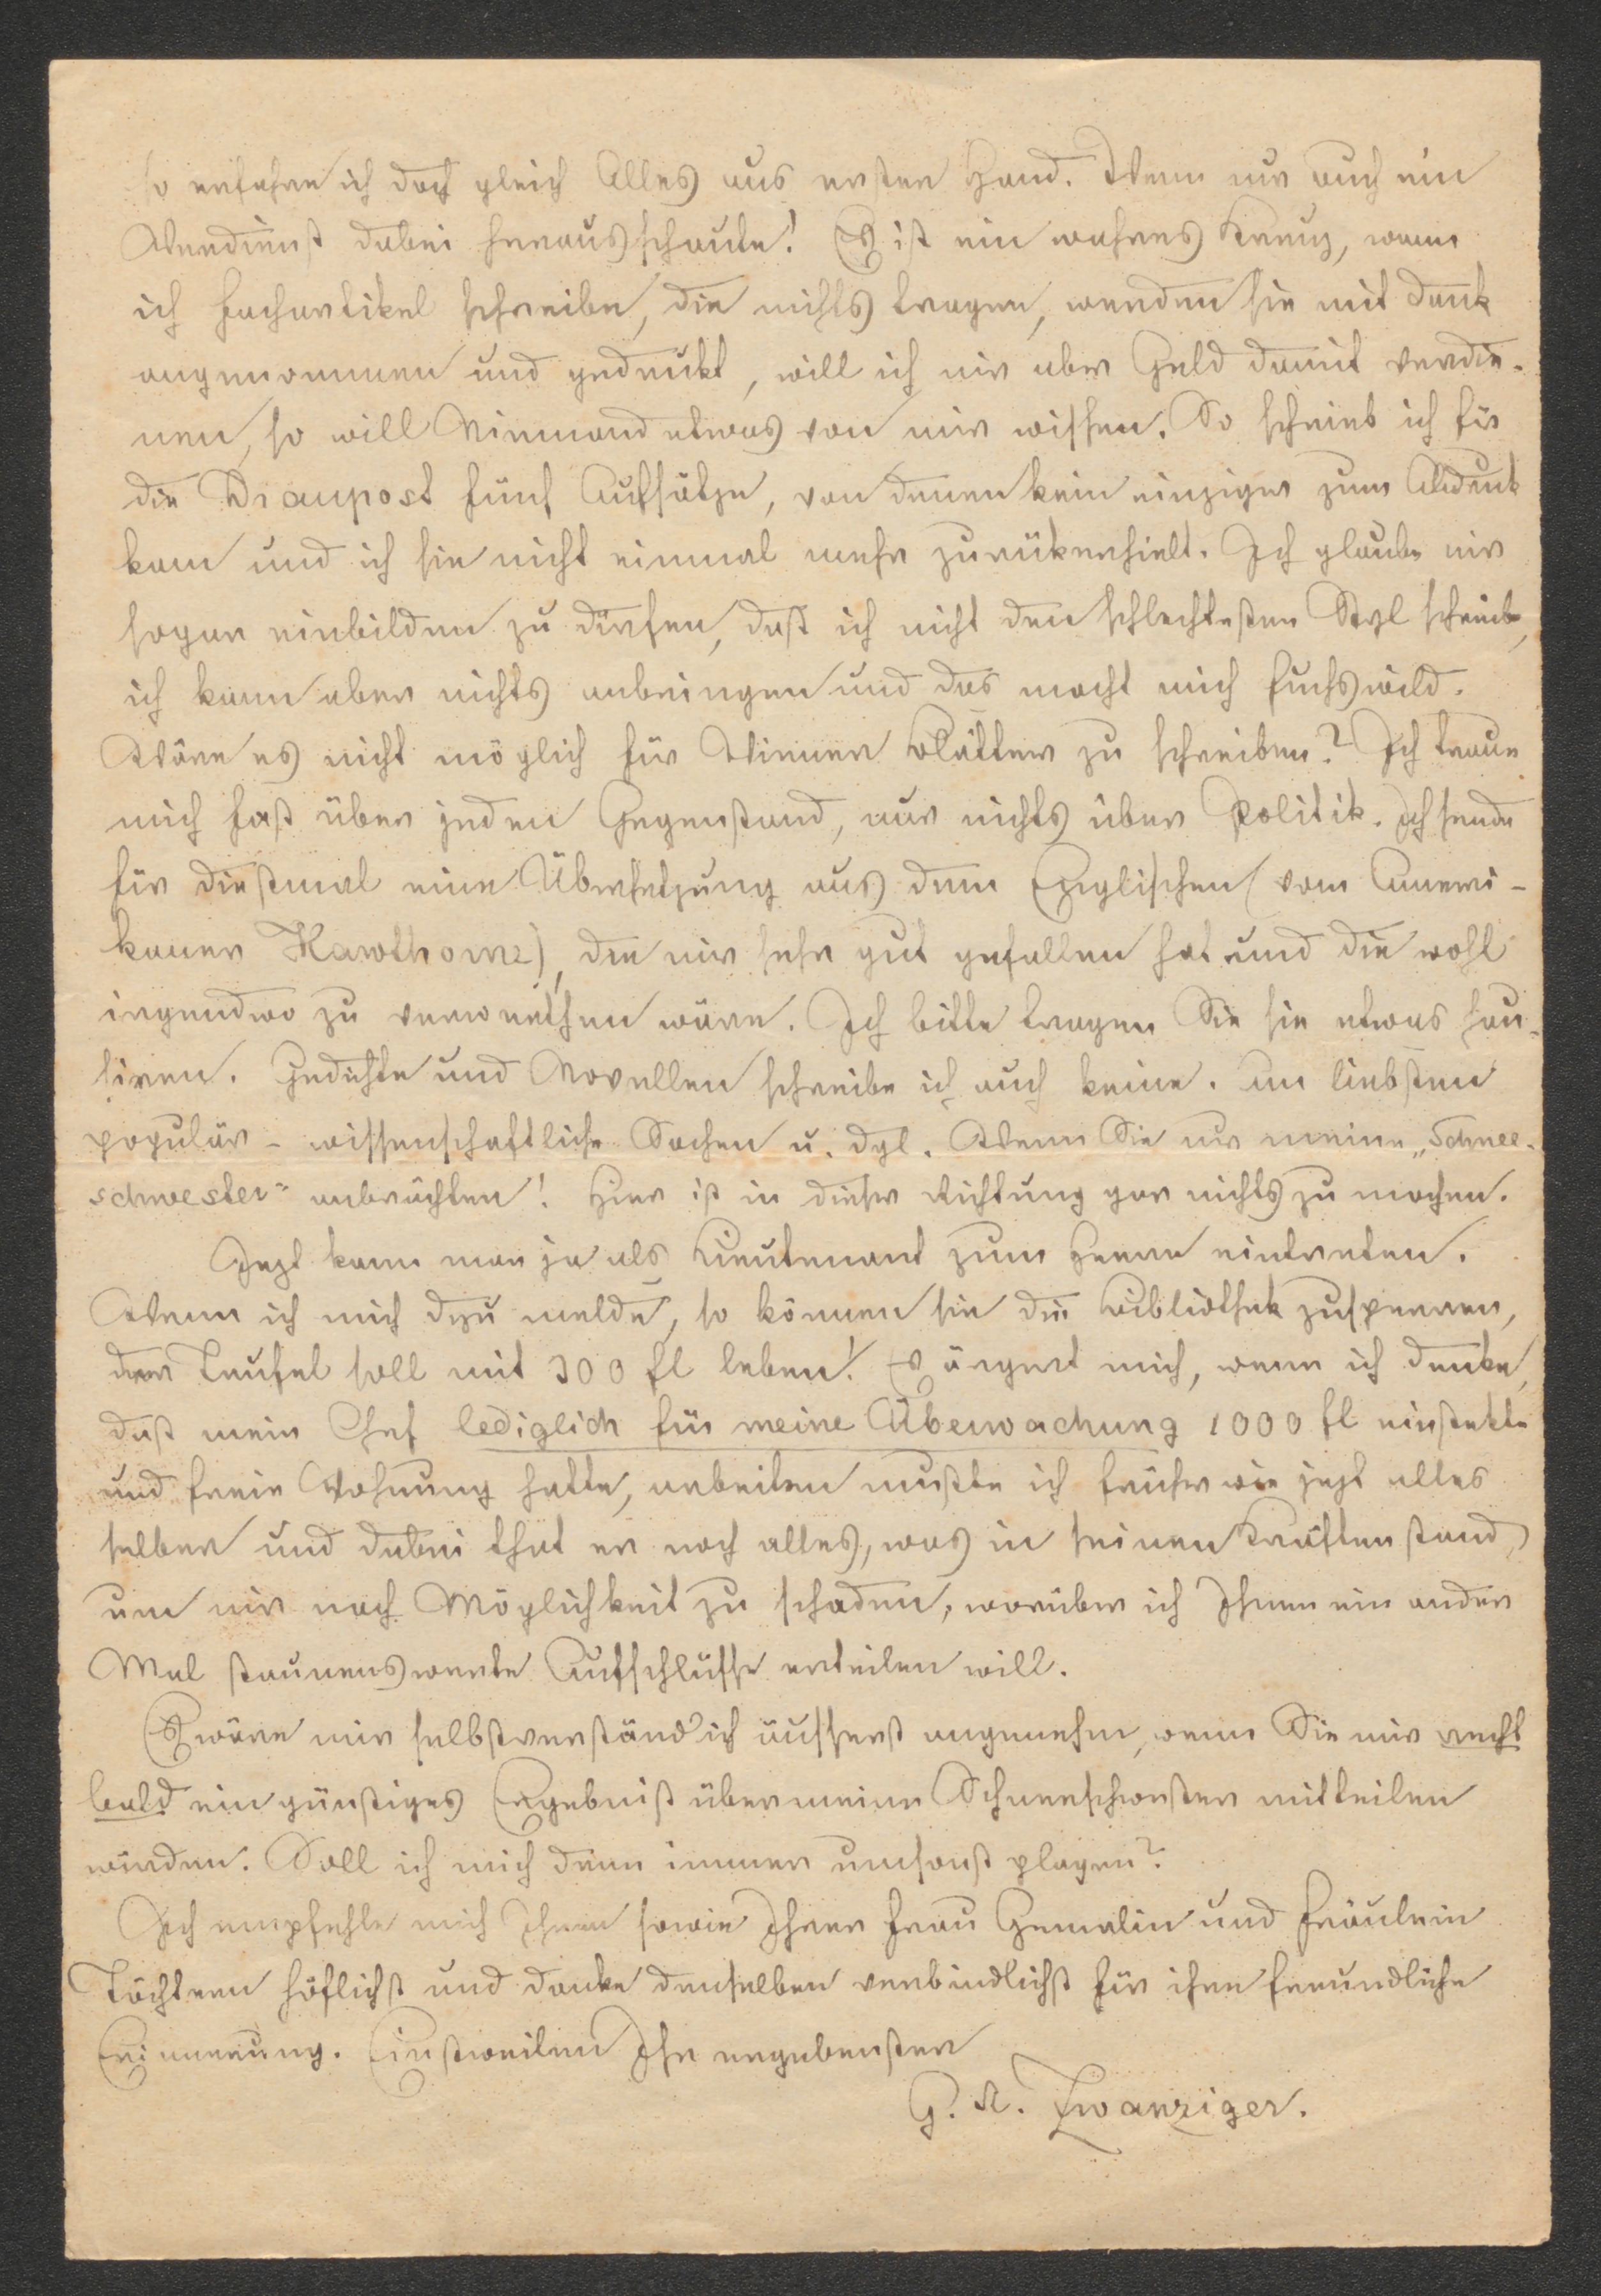 so erfahre ich doch gleich Alles aus erster Hand. Wenn nur auch ein
Verdienst dabei herausschaute! Es ist ein wahres Kreuz, wenn
ich Fachartikel schreibe, die nichts tragen, werden sie mit Dank
angenommen und gedrukt, will ich mir aber Geld damit verdie-
nen, so will Niemand etwas von mir wissen. So schrieb ich für
die Draupost fünf Aufsätze, von denen kein einziger zum Abdruk
kam und ich sie nicht einmal mehr zurükerhielt. Ich glaube mir
sogar einbilden zu dürfen, daß ich nicht den schlechtesten Styl schreibe,
ich kann aber nichts anbringen und das macht mich fuchswild.
Wäre es nicht möglich für Wiener Blätter zu schreiben? Ich traue
mich fast über jeden Gegenstand, nur nichts über Politik. Ich sende
für diesmal eine Übersetzung aus dem Englischen (vom Ameri-
kaner Hawthorne), die mir sehr gut gefallen hat und die wohl
irgendwo zu verwerthen wäre. Ich bitte tragen Sie sie etwas hau-
siren. Gedichte und Novellen schreibe ich auch keine. am liebsten
populär-wissenschaftliche Sachen u. dgl. Wenn Sie nur meine „Schnee-
schwester“ anbrächten! Hier ist in dieser Richtung gar nichts zu machen.
Jezt kann man ja als Lieutenant zum Heere eintreten.
Wenn ich mich dazu melde, so können sie die Bibliothek zusperren,
der Teufel soll mit 300 fl leben! Es ärgert mich, wenn ich denke,
daß mein Chef lediglich für meine Überwachung 1000 fl einstekte
und freie Wohnung hatte, arbeiten mußte ich früher wie jezt alles
selber und dabei that er noch alles, was in seinen Kräften stand,
um mir nach Möglichkeit zu schaden, worüber ich Ihnen ein ander
Mal staunenswerte Aufschlüsse erteilen will.
Es wäre mir selbstverständlich äusserst angenehm, wenn Sie mir recht
bald ein günstiges Ergebniß über meine Schneeschwester mitteilen
würden. Soll ich mich denn immer umsonst plagen?
Ich empfehle mich Ihnen sowie Ihrer Frau Gemalin und Fräulein
Töchtern höflichst und danke denselben verbindlichst für ihre freundliche
Erinnerung. Einstweilen Ihr ergebenster
G. A. Zwanziger.